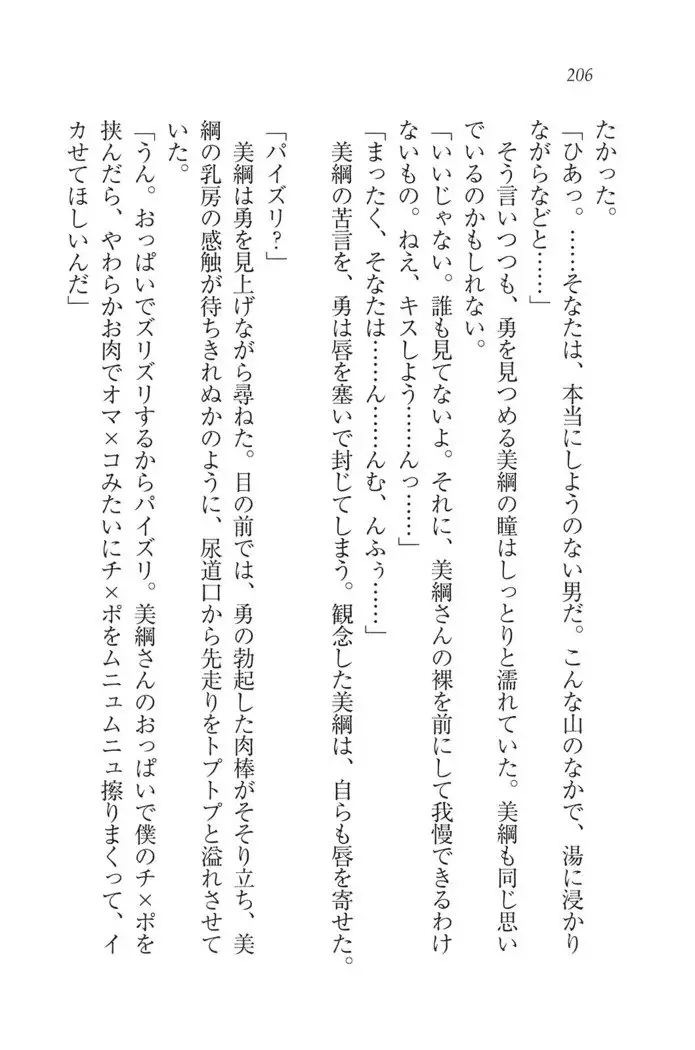 206
たかった。
「ひあっ。……そなたは、本当にしようのない男だ。こんな山のなかで、湯に浸かり
ながらなどと……」
そう言いつつも、勇を見つめる美綱の瞳はしっとりと濡れていた。美綱も同じ思い
でいるのかもしれない。
「いいじゃない。誰も見てないよ。それに、美綱さんの裸を前にして我慢できるわけ
ないもの。ねえ、キスしよう……んっ……」
「まったく、そなたは……ん……んむ、んふぅ……」
美綱の苦言を、勇は唇を塞いで封じてしまう。観念した美綱は、自らも唇を寄せた。
「パイズリ？」
美綱は勇を見上げながら尋ねた。目の前では、勇の勃起した肉棒がそそり立ち、美
綱の乳房の感触が待ちきれぬかのように、尿道口から先走りをトプトプと溢れさせて
いた。
「うん。おっぱいでズリズリするからパイズリ。美綱さんのおっぱいで僕のチ×ポを
挟んだら、やわらかお肉でオマ×コみたいにチ×ポをムニュムニュ擦りまくって、イ
カせてほしいんだ」